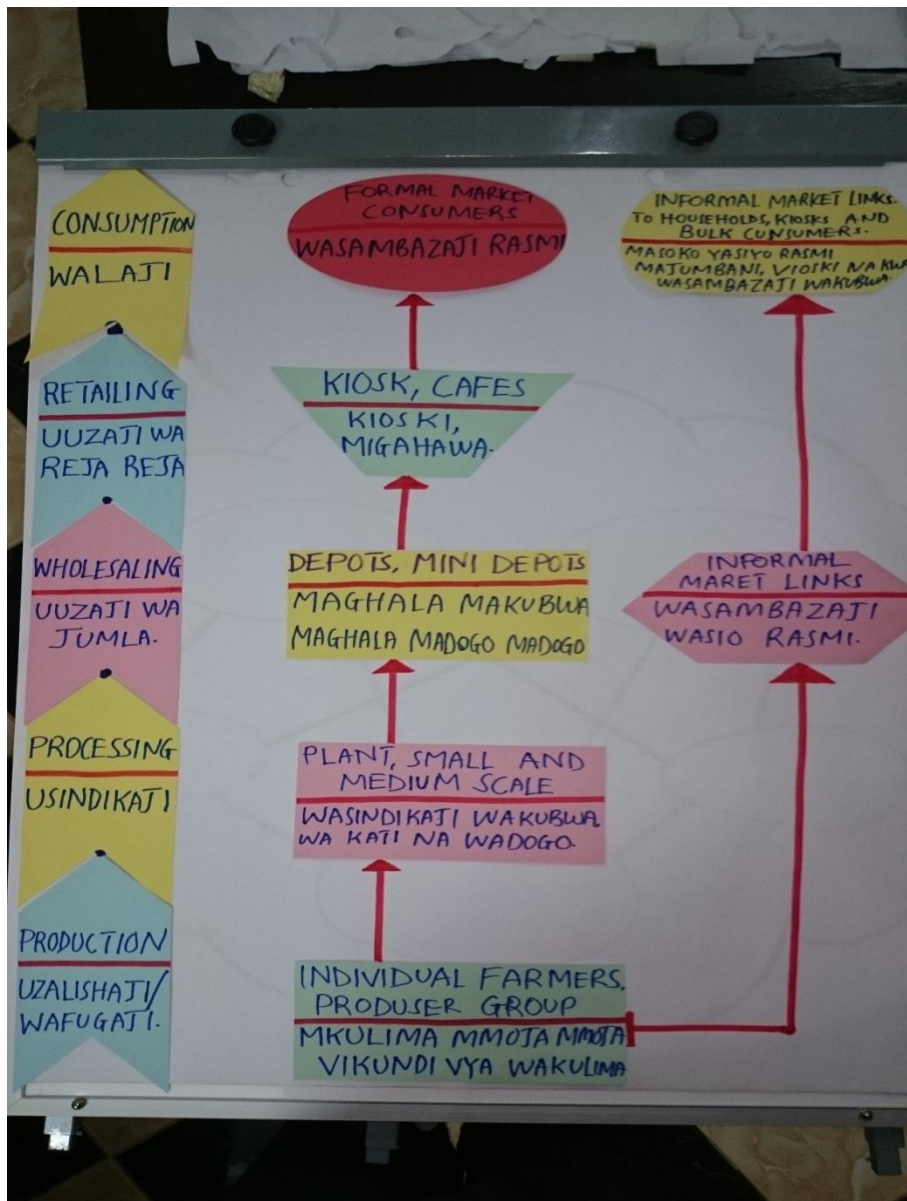 CONSUMPTION
WALAJI
RETAILING
UUZAJI WA
REJA REJA
WHOLESALING
UUZAJI WA
JUMLA.
PROCESSING
USINDIKAJI
PRODUCTION
UZALISHAJI/
WAFUGAJI.
FORMAL MARKET
CONSUMERS
WASAMBAZAJI RASMI
KIOSK, CAFES
KIOSKI,
MIGAHAWA.
DEPOTS, MINI DEPOTS
MAGHALA MAKUBWA
MAGHALA MADOGO MADOGO
PLANT, SMALL AND
MEDIUM SCALE
WASINDIKAJI WAKUBWA
WA KATI NA WADOGO.
INDIVIDUAL FARMERS.
PRODUSER GROUP
MKULIMA MMOJA MMOJA
VIKUNDI VYA WAKULIMA
INFORMAL MARKET LINKS.
TO HOUSEHOLDS, KIOSKS AND
BULK CUNSUMERS.
MASOKO YASIYO RASMI
MATUMBANI, VIOSKI NA KWA
WASAMBAZAJI WAKUBWA.
INFORMAL
MARET LINKS
WASAMBAZAJI
WASIO RASMI.